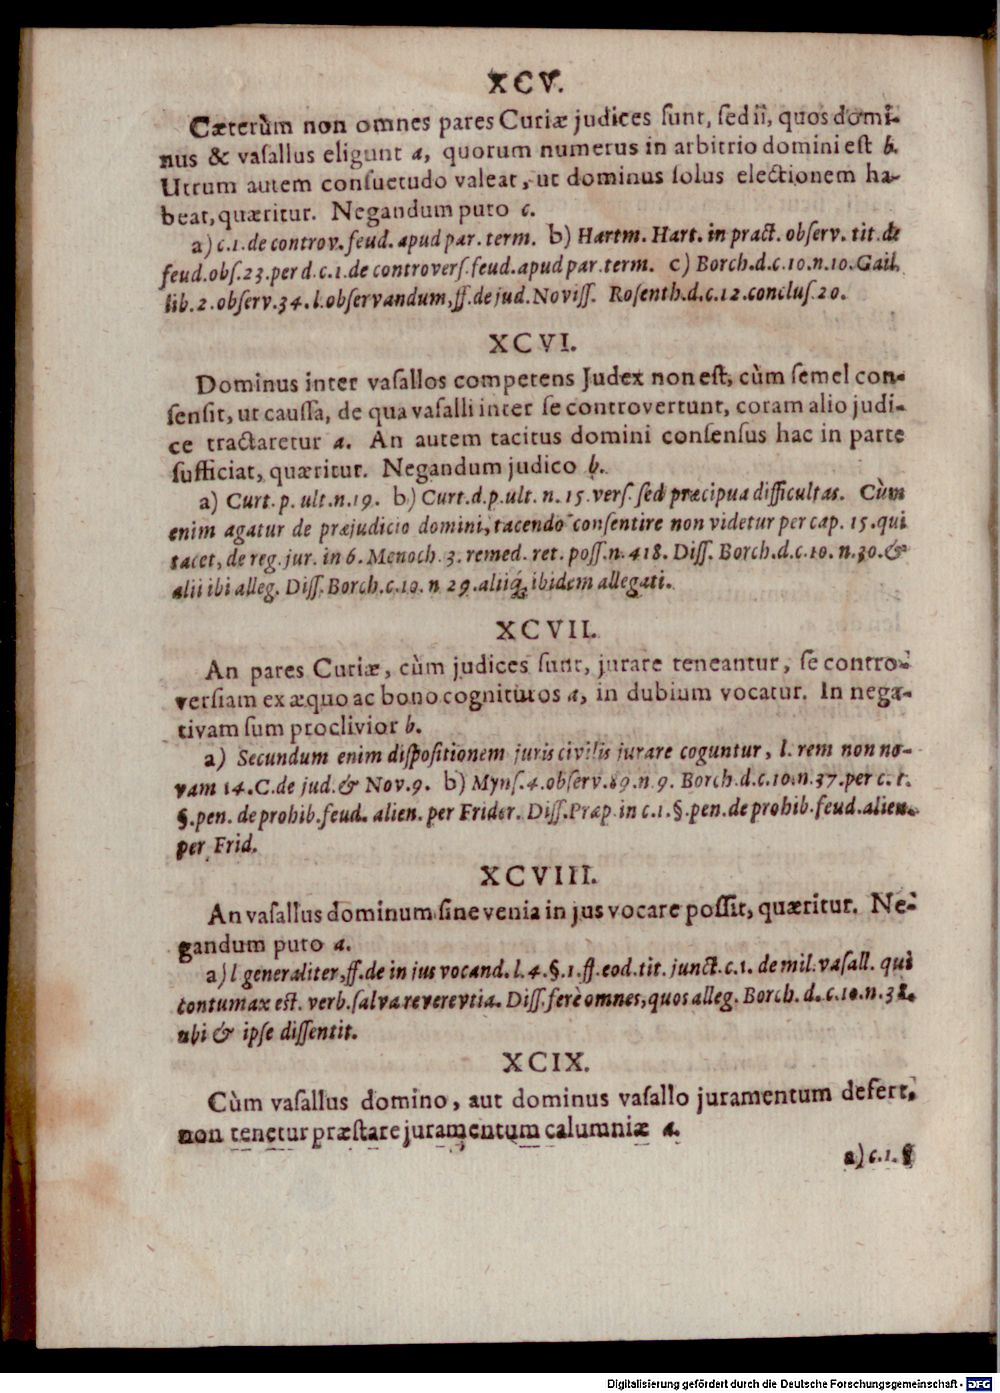 XCV.
Cæterùm non omnes pares Curiæ judices sunt, sed ii, quos domi-
nus & vasallus eligunt a, quorum numerus in arbitrio domini est b.
Utrum autem consuetudo valeat, ut dominus solus electionem ha-
beat, quæritur. Negandum puto c.
a) c.1. de controv. feud. apud par. term. b) Hartm. Hart. in pract. observ. tit. de
feud. obs. 23. per d. c. 1. de controvers. feud. apud par. term. c) Borch. d. c. 10. n. 10. Gail.
lib. 2. observ. 34. l. observandum, ff. de jud. Noviss. Rosenth. d. c. 12. conclus. 20.
XCVI.
Dominus inter vasallos competens Judex non est, cùm semel con-
sensit, ut caussa, de qua vasalli inter se controvertunt, coram alio judi-
ce tractaretur a. An autem tacitus domini consensus hac in parte
sufficiat, quæritur. Negandum judico b.
a) Curt. p. ult. n. 19. b) Curt. d. p. ult. n. 15. vers. sed præcipua difficultas. Cùm
enim agatur de præjudicio domini, tacendo consentire non videtur per cap. 15. qui
tacet, de reg. jur. in 6. Menoch. 3. remed. ret. poss. n. 418. Diss. Borch. d. c. 10. n. 30. &
alii ibi alleg. Diss. Borch. c. 10. n 29. aliiq́; ibidem allegati.
XCVII.
An pares Curiæ, cùm judices sunt, jurare teneantur, se contro-
versiam ex æquo ac bono cognituros a, in dubium vocatur. In nega-
tivam sum proclivior b.
a) Secundum enim dispositionem juris civilis jurare coguntur, l. rem non no-
vam 14. C. de jud. & Nov. 9. b) Myns. 4. observ. 89. n. 9. Borch. d. c. 10. n. 37. per c. 1.
§. pen. de prohib. feud. alien. per Frider. Diss. Præp. in c. 1. §. pen. de prohib. feud. alien.
per Frid.
XCVIII.
An vasallus dominum sine venia in jus vocare possit, quæritur. Ne-
gandum puto a.
a) l generaliter, ff. de in jus vocand. l. 4. §. 1. ff. eod. tit. junct. c. 1. de mil. vasall. qui
contumax est. verb. salva reverevtia. Diss. ferè omnes, quos alleg. Borch. d. c. 10. n. 38.
ubi & ipse dissentit.
XCIX.
Cùm vasallus domino, aut dominus vasallo juramentum defert,
non tenetur præstare juramentum calumniæ a.
a) c. 1. §
Digitalisierung gefördert durch die Deutsche Forschungsgemeinschaft - DFG